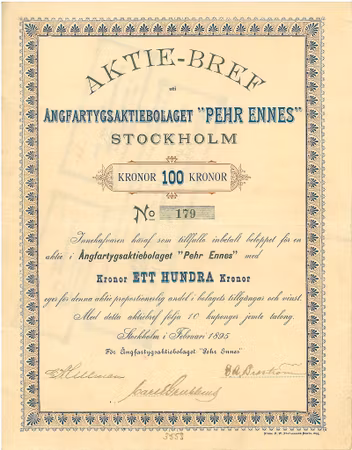 AKTIE-BREF
uti
ÅNGFARTYGSAKTIEBOLAGET "PEHR ENNES"
STOCKHOLM
KRONOR 100 KRONOR
No 179
Innehafvaren häraf som tillfullo inbetalt beloppet för en
aktie i Ångfartygsaktiebolaget "Pehr Ennes" med
Kronor ETT HUNDRA Kronor
eger för denna aktie proportionerlig andel i bolagets tillgångar och vinst.
Med detta aktiebref följa 10 kuponger jemte talong.
Stockholm i Februari 1895
För Ångfartygsaktiebolaget "Pehr Ennes"
5553